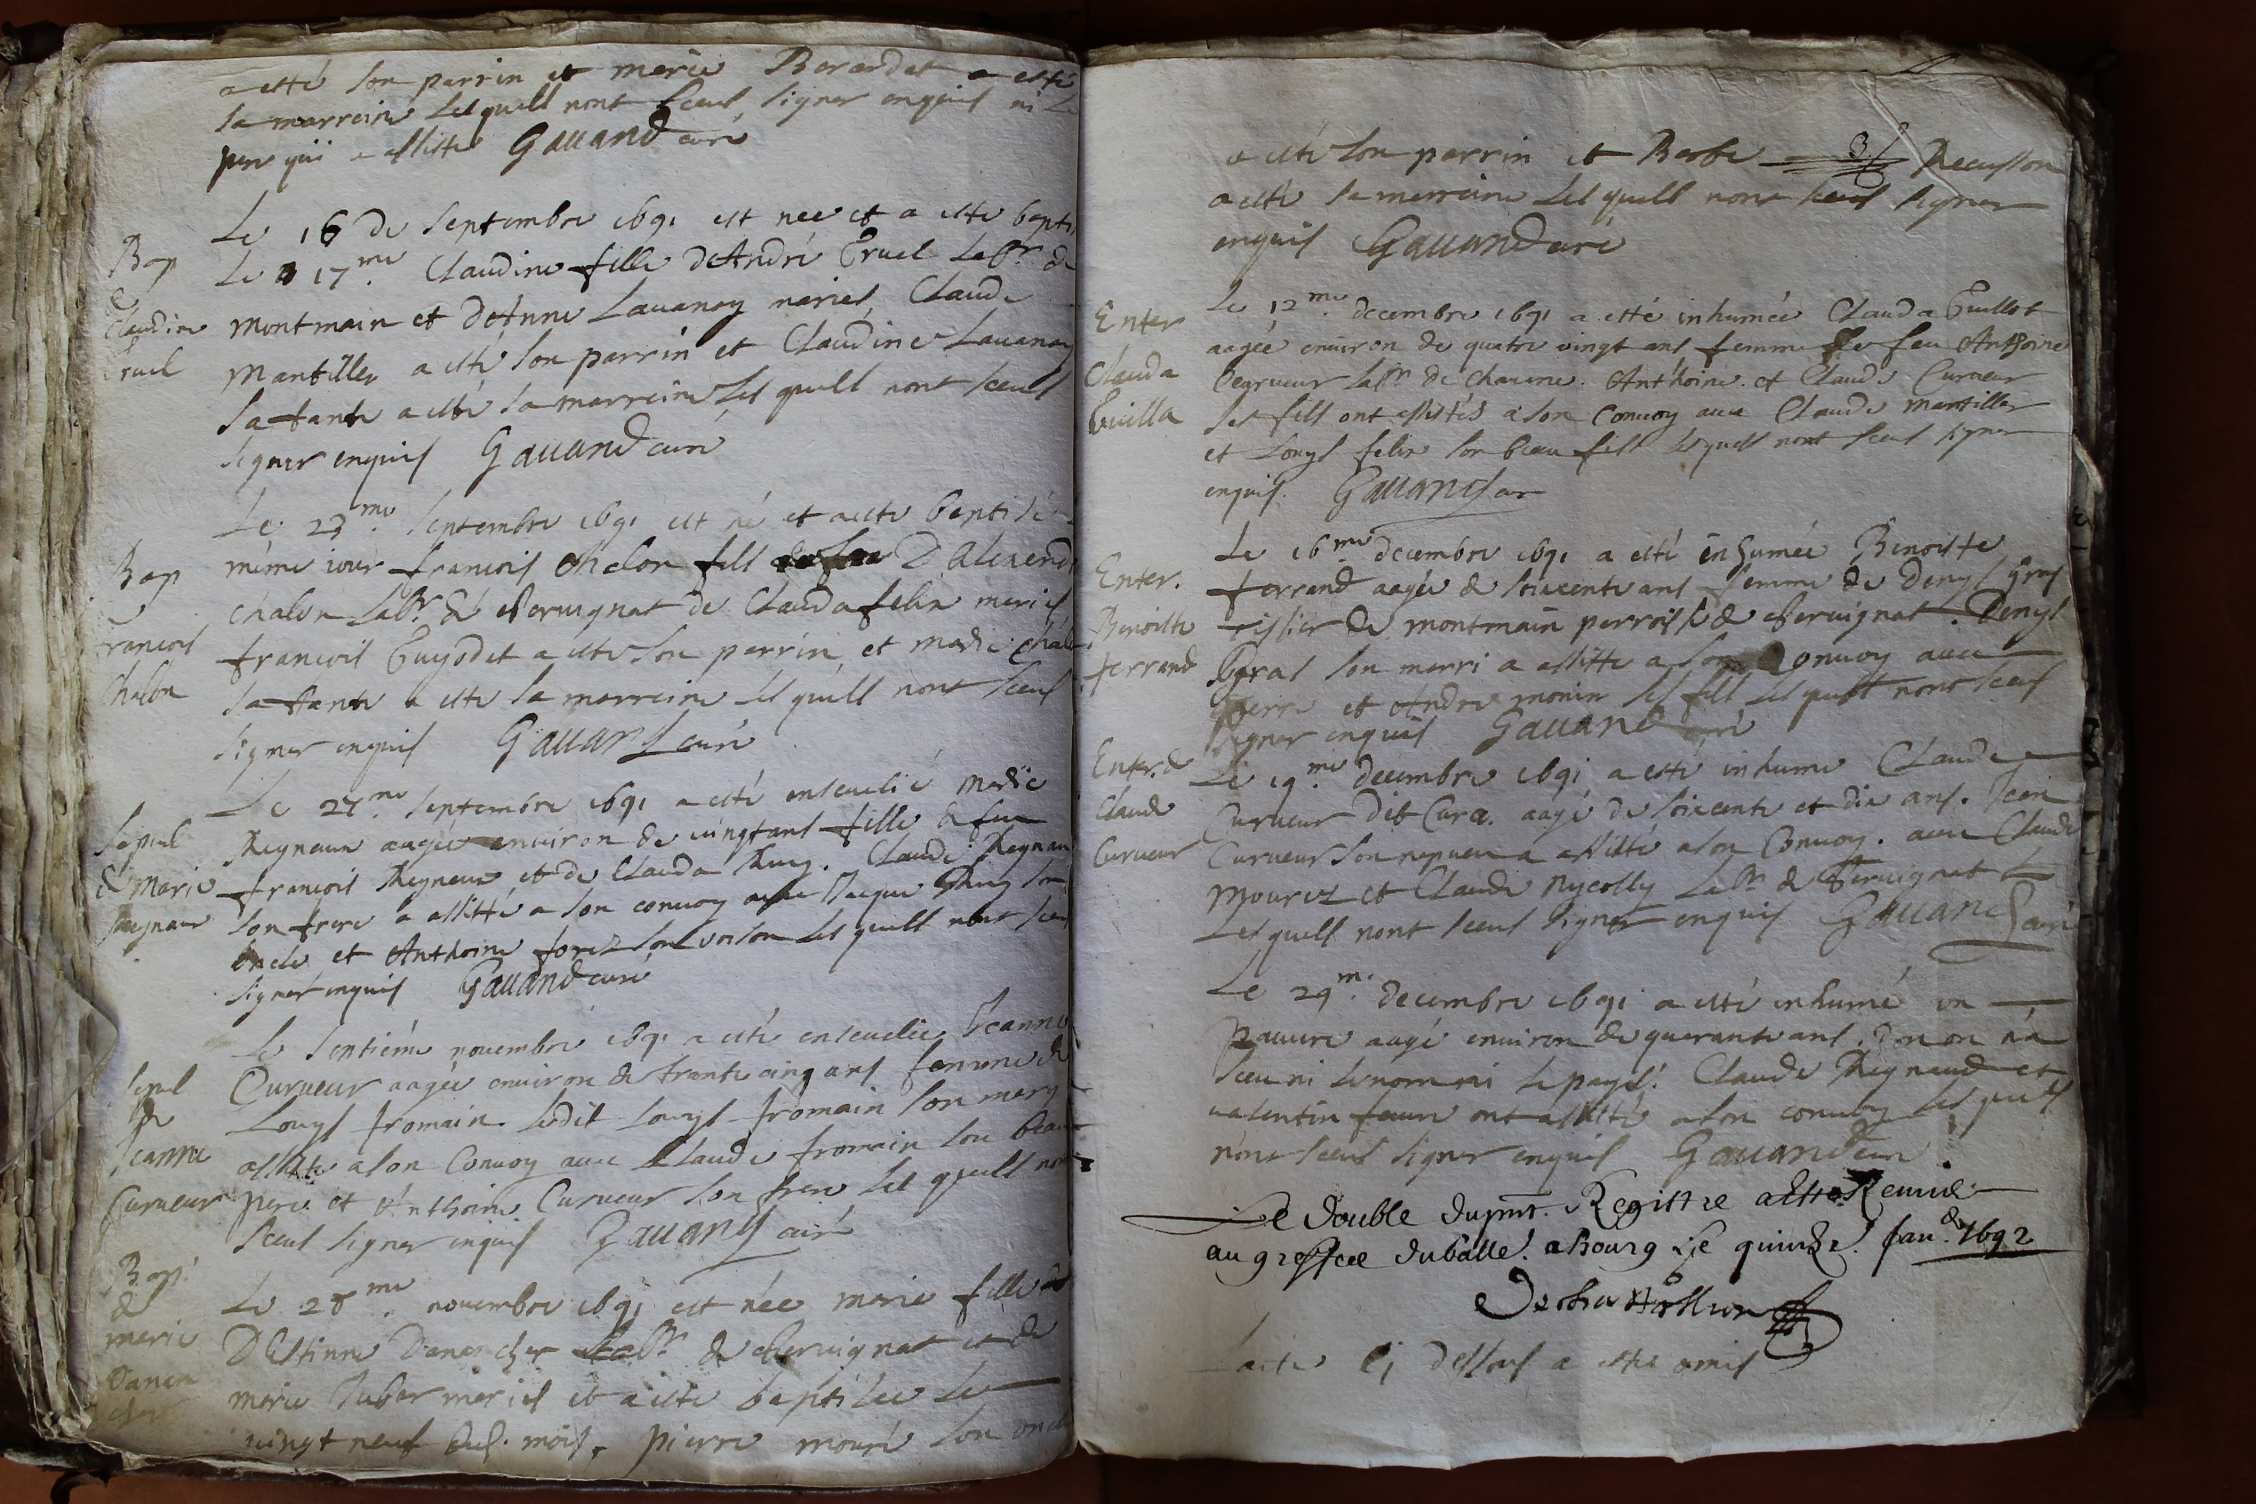 a esté son parrin et marie Berardet a esté
sa marreine lesquells nont sceus signer enquis ni le
pere qui a assisté Gauand curé
Le 16 de septembre 1691 est nee et a este bapti
Bap
de
Claudine
Cruel
le 17me Claudine fille d'André Cruel labr de
montmain et d'Anne Lauanay mariés, Claude
Mantiller a esté son parrin et Claudine Lauanay
sa tante a esté sa marreine lesquells nont sceus
signer enquis Gauand curé
Le 23me septembre 1691 est né et a este baptisé
Bap
francois
Chalon
méme iour francois Chalon fils D'Alexend
Chalon labr de cheruignat de Clauda felix mariés
francois Guyodet a esté son parrin, et marie Chalon
sa tante a este sa marreine lesquells nont sceus
signer enquis Gauand curé
Le 27me septembre 1691 a esté enseuelié marie
Sepul
de marie
Reignaux
Reigneux aagée enuiron de uingt ans fille de feu
francois Reigneux et de Clauda Ruey. Claude Regnau
son frere a assisté a son conuoy auec Jaque Ruey son
oncle et Anthoine forez son voisin lesquells nont sceus
signer enquis Gauand curé
Le septiéme nouembre 1691 a esté enseuelie Jeanne
Sepul
de
Jeanne
Curueur
Curueur aagée enuiron de trente cinq ans femme de
Louys fromain. ledit Louys fromain son mary
assiste a son Conuoy auec Claude fromain son beau
pere et Anthoine Curueur son frere lesquells nont
sceus signer enquis Gauand curé
Bap.
de
marie
Danan
cher
Le 28me nouembre 1691 est née marie fille
D'Estinne Danancher labr de cheruignat et de
marie Juber mariés et a esté baptisée le
uingt neuf dud. mois, pierre mouré son oncle
a esté son parrin et Barbe Recusson
a esté sa marreine lesquells nont sceus signer
enquis Gauand curé
Le 12me decembre 1691 a esté inhumée Clauda Guillot
Enter
Clauda
Guilla
aagée enuiron de quatre vingt ans femme de feu Anthoine
Curueur labr de Charme. Anthoine et Claude Curueur
ses fils ont assistés a son Conuoy auec Claude mantiller
et Louys felix son beau fils lesquells nont sceus signer
enquis. Gauand cur
Le 16me decembre 1691 a esté inhumée Benoiste
Enter.
Benoiste
ferrand
ferrand aagée de soixente ans femme de Denys Gras
tissier de montmain parroisse de cheruignat. Denys
Gras son marri a assisté a son Conuoy auec
pierre et Andre monin ses fils lesquells nont sceus
signer enquis Gauand curé
Enter. de
Claude
Curueur
Le 19me decembre 1691 a esté inhumé Claude
Curueur dit Cura. aagé de soixente et dix ans. Jean
Curueur son nepueu a assisté a son Conuoy. auec Claude
Mourez et Claude Nycolly labr de Cheruignat
Lesquells nont sceus signer enquis Gauand curé
Le 29m. decembre 1691 a esté inhumé un
pauure aagé enuiron de quarante ans. don on n'a
sceu ni le nom ni le pays. Claude Regnaud et
ualentin faure ont assisté a son conuoy lesquels
n'ont sceus signer enquis Gauand cur
Le double du pnt. Regittre a esté Remis
au greffe du balle. a bourg ce quinze. Jan. 1692
Lacte cy dessous a esté omis